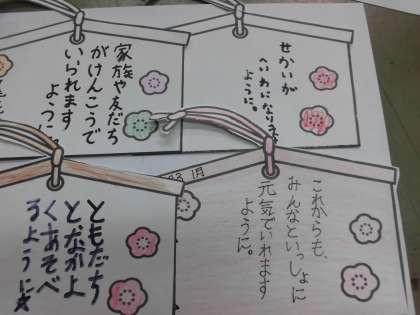 家族や友だち
がけんこうで
いられます
ように。
せかいが
へいわになります
ように。
ともだち
となかよ
くあそべ
るように
1月
これからも、
みんなといっしょに
元気でいれます
ように。